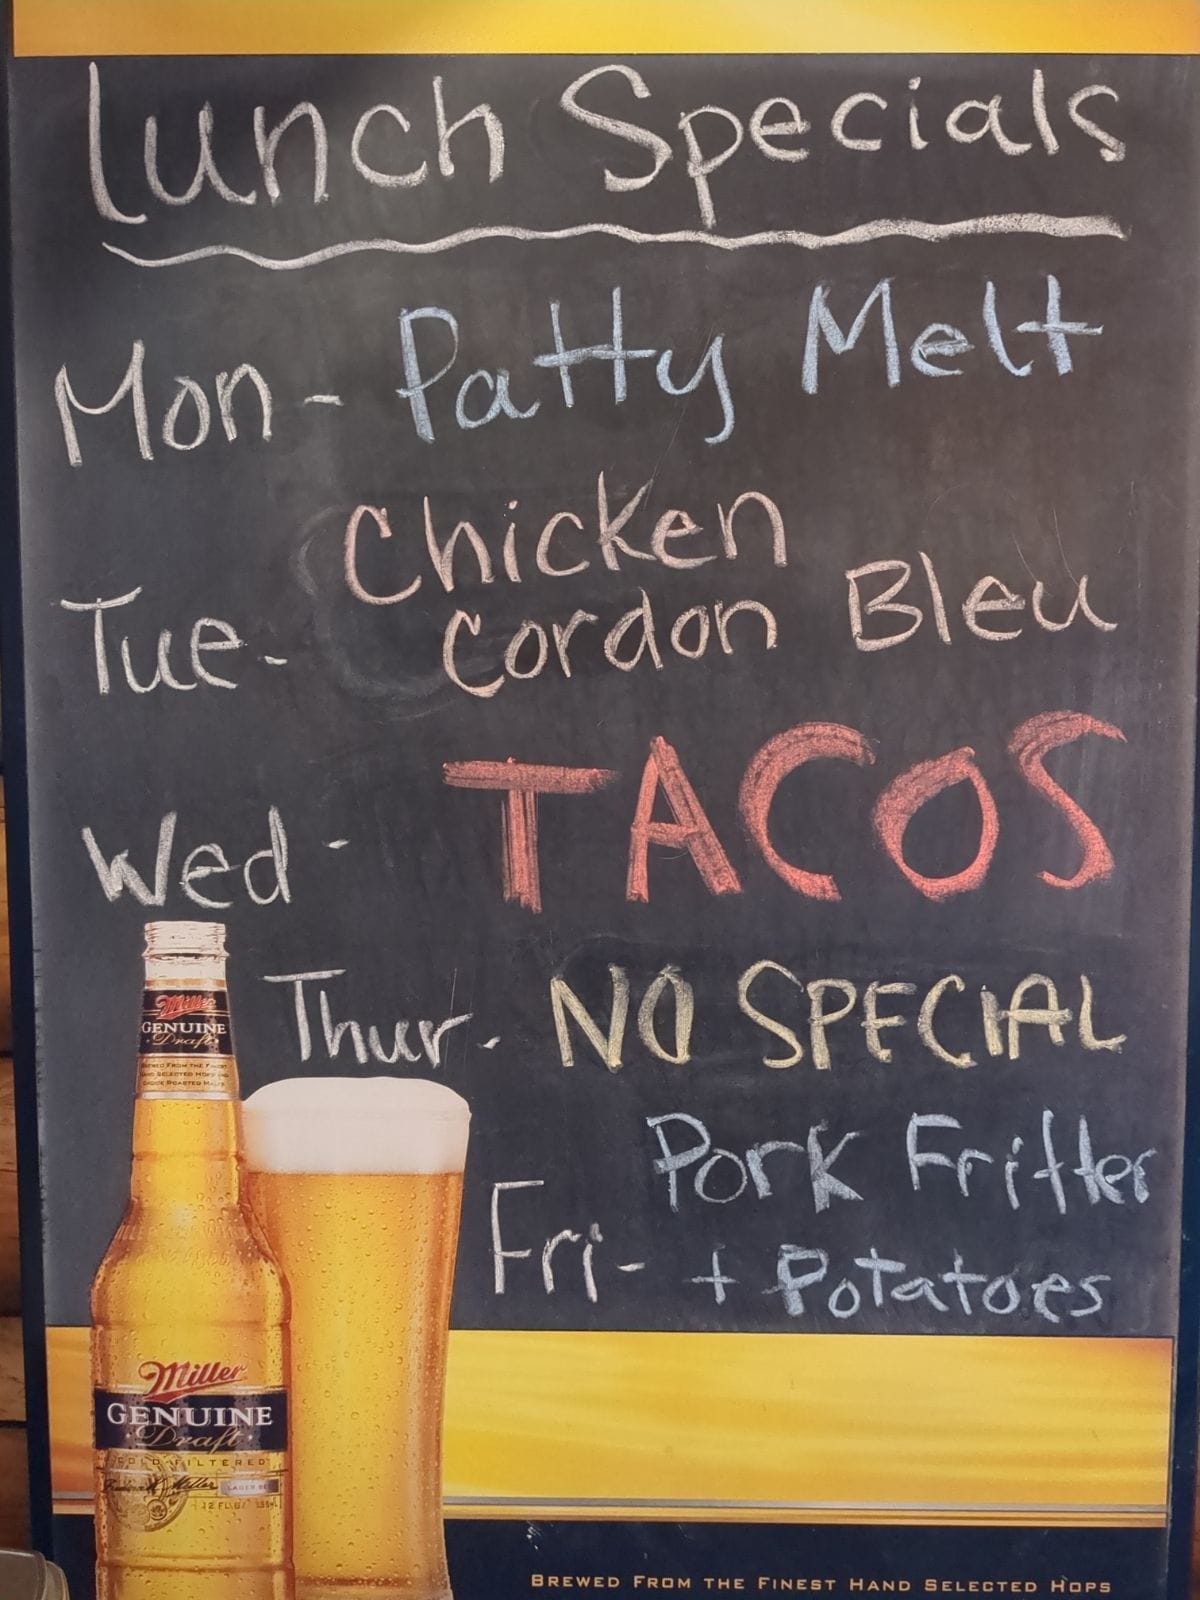 Lunch Specials
Mon - Patty Melt
Chicken
Tue - Cordon Bleu
Wed - TACOS
Thur - NO SPECIAL
Pork Fritter
Fri - + Potatoes
Miller
GENUINE
Draft
BREWED FROM THE FINEST
HAND SELECTED HOPS AND
CHOICE ROASTED MALTS
Miller
GENUINE
Draft
COLD FILTERED
Miller
LAGER BEER
BREWED FROM THE FINEST HAND SELECTED HOPS